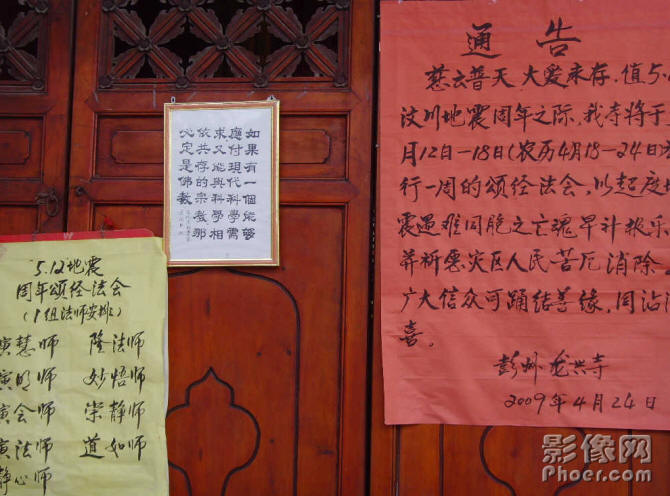 5.12地震
周年颂经法会
(1组法师安排)
寅慧师 隆法师
寅明师 妙悟师
寅会师 宗静师
寅法师 道如师
静心师
如果有一個能够
應付現代科學需
求又能與科學相
依共存的宗教那
必定是佛教
通告
慈云普天,大爱来存,值5.
汶川地震周年之际,我寺将于
月12日—18日(农历4月18—24日
行一周的颂经法会,以超度
震遇难同胞之亡魂早升极乐
并祈愿灾区人民苦厄消除
广大信众可踊结善缘,同沾
喜.
彭州龙兴寺
2009年4月24日
影像网
Phoer.com